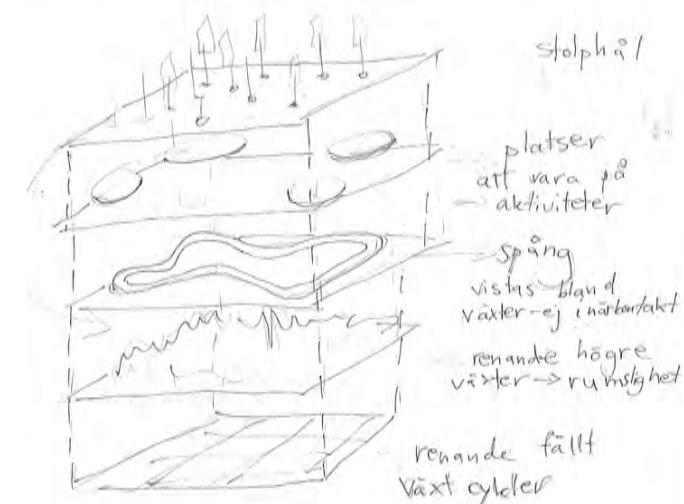 stolphål
platser
att vara på
aktiviteter
spång
vistas bland
växter - ej i närkontakt
renande högre
växter → rumslighet
renande fällt
växt cykler